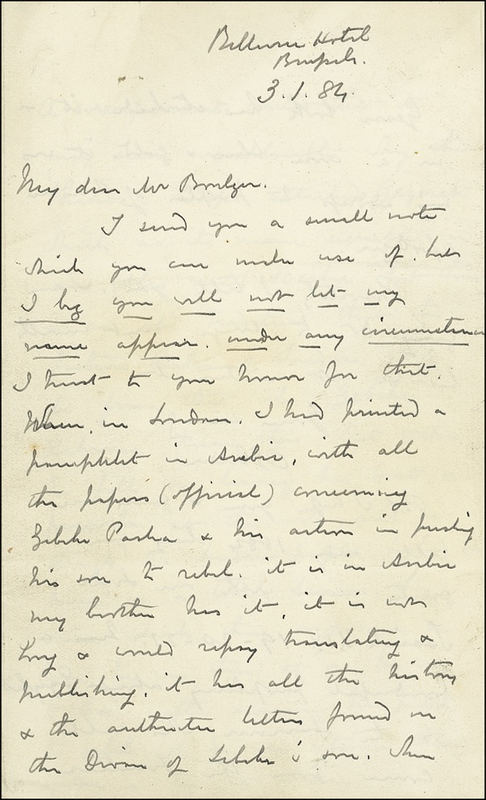 Bellevue Hotel
Brussels.
3.1.84.
My dear Mr Boulger.
I send you a small note
which you can make use of. but
I beg you will not let my
name appear. under any circumstances
I trust to your honor for that.
When, in London. I had printed a
pamphlet in Arabic, with all
the papers (official) concerning
Zebehr Pasha & his action in pushing
his son to rebel. it is in Arabic
my brother has it, it is not
long & would repay translating &
publishing. it has all the history
& the authentic letters found in
the Divan of Zebehr's son. when